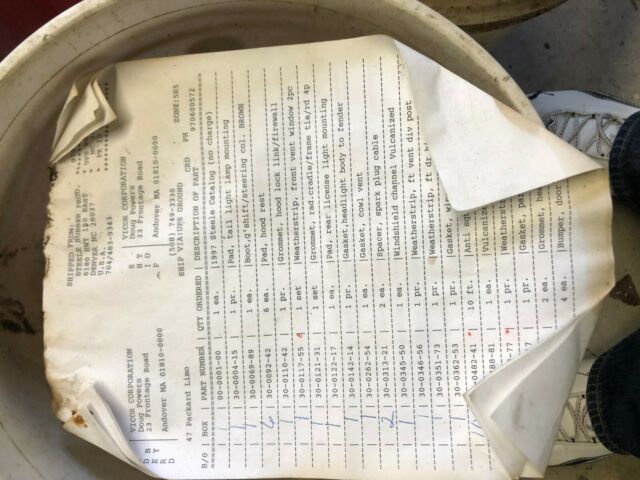 SHIPPED FROM:
STEELE RUBBER PROD.
6180 HWY 150 EAST
DENVER NC 28037
U.S.A.
704/483-9343
VICOR CORPORATION
Doug Powers
23 Frontage Road
Andover MA 01810-0000
S H I P
T O
VICOR CORPORATION
Doug Powers
23 Frontage Road
Andover MA 01810-0000
(508) 749-3330
SHIP VIA:UPS GROUND CRD PH ZONE:5R5
47 Packard Limo 970600572
B/O | BOX | PART NUMBER | QTY ORDERED | DESCRIPTION OF PART
00-0001-00 | 1 ea. | 1997 Steele Catalog (no charge)
30-0004-15 | 1 pr. | Pad, tail light lamp mounting
1 | 30-0069-89 | 1 ea. | Boot,g'shift/steering col. BROWN
6 | 30-0092-42 | 6 ea. | Pad, hood rest
1 | 30-0110-42 | 1 pr. | Grommet, hood lock link/firewall
1 | 30-0117-55 | 1 set | Weatherstrip, front vent window 2pc
1 | 30-0121-31 | 1 set | Grommet, rad.cradle/frame tie/rd 4p
1 | 30-0122-17 | 1 ea. | Pad, rear license light mounting
1 | 30-0142-14 | 1 pr. | Gasket,headlight body to fender
1 | 30-0262-54 | 1 ea. | Gasket, cowl vent
2 | 30-0313-21 | 2 ea. | Spacer, spark plug cable
1 | 30-0340-50 | 1 ea. | Windshield channel Vulcanized
1 | 30-0346-56 | 1 pr. | Weatherstrip, ft vent div post
1 | 30-0351-73 | 1 pr. | Weatherstrip, ft dr
1 | 30-0362-53 | 1 pr. | Gasket,
-0482-41 | 10 ft. | Anti squ
88-81 | 1 ea. | Vulcaniz
-77 | 1 pr. | Weatherst
1 pr. | Gasket, pa
2 ea. | Grommet, he
4 ea. | Bumper, door